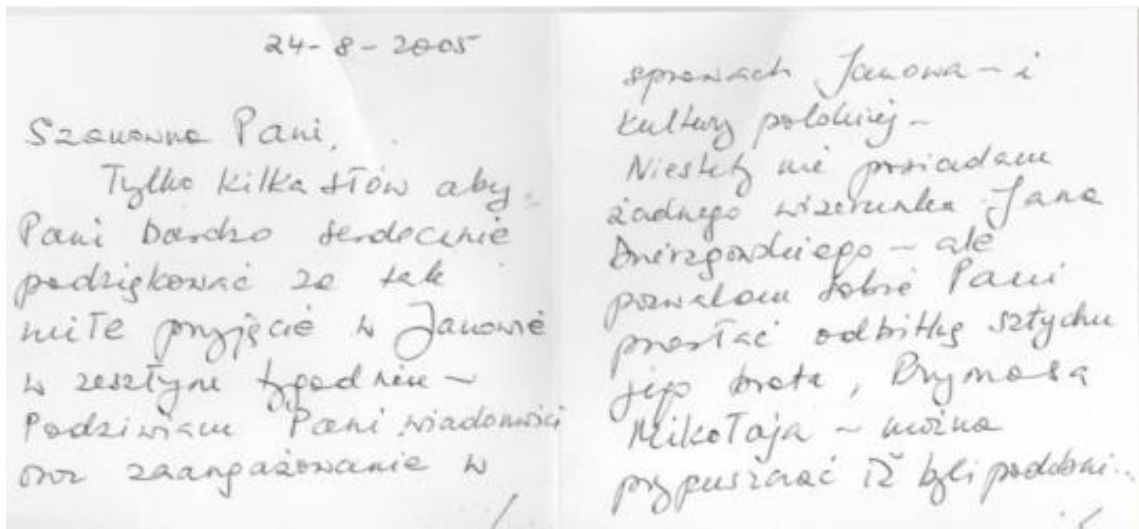 24-8-2005
Szanowna Pani,
Tylko kilka słów aby
Pani bardzo serdecznie
podziękować za tak
miłe przyjęcie w Janowie
w zeszłym tygodniu –
Podziwiam Pani wiadomości
oraz zaangażowanie w
sprawach Janowa – i
Kultury polskiej –
Niestety nie posiadam
żadnego wizerunku Jana
Dzierzgowskiego – ale
pozwalam sobie Pani
przesłać odbitkę sztychu
jego brata, Prymasa
Mikołaja – można
przypuszczać iż byli podobni...